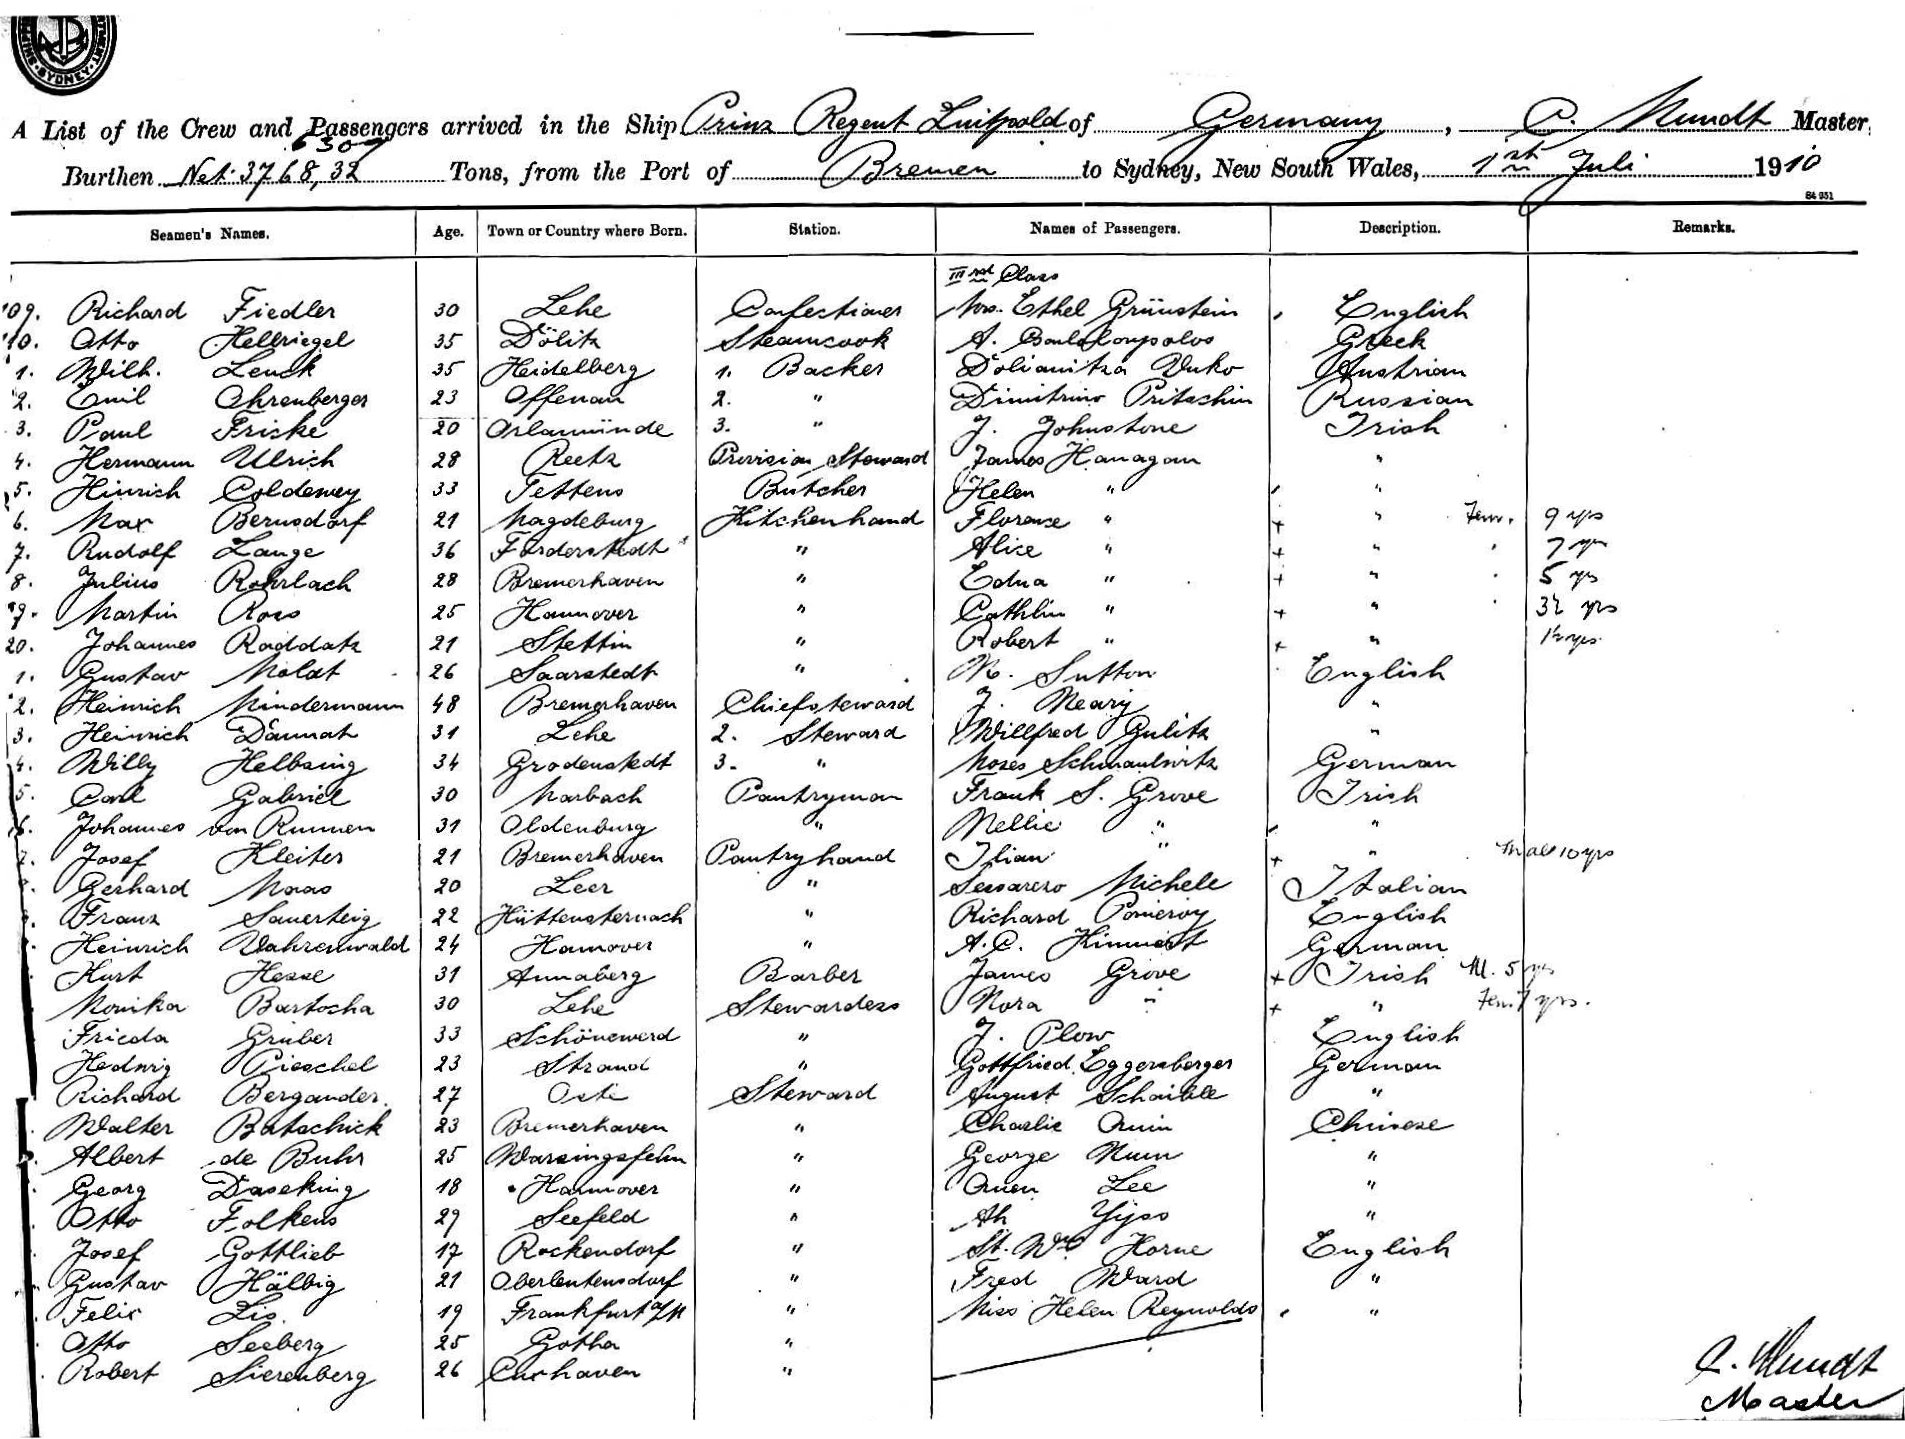 SYDNEY
A List of the Crew and Passengers arrived in the Ship Prinz Regent Luitpold of Germany, C. Mundt Master,
6309
Burthen Net: 3768,32 Tons, from the Port of Bremen to Sydney, New South Wales, 1st Juli 1910
Seamen's Names. Age. Town or Country where Born. Station. Names of Passengers. Description. Remarks.
IIIrd Class
109. Richard Fiedler 30 Lehe Confectioner Mrs. Ethel Grünstein English
110. Otto Hellriegel 35 Dölitz Steamcook A. Greek
1. Wilh. Lenck 35 Heidelberg 1. Backer Dolianitza Vuko Austrian
2. Emil Ahrenberger 23 Offenau 2. " Dimitrino Pritschin Russian
3. Paul Fricke 20 Orlamünde 3. " J. Johnstone Irish
4. Hermann Ulrich 28 Reetz Provision Steward James Hanagan "
5. Hinrich Coldewey 33 Tettens Butcher Helen " "
6. Max Bernsdorf 21 Magdeburg Kitchenhand Florence " + " Fem. 9 yrs
7. Rudolf Lange 36 Förderstedt " Alice " + " 7 yrs
8. Julius Rohrlach 28 Bremerhaven " Edna " + " 5 yrs
9. Martin Ross 25 Hannover " Cathlin " + " 3½ yrs
20. Johannes Raddatz 21 Stettin " Robert " + " 1½ yrs.
1. Gustav Moldt 26 Saarstedt " M. Sutton English
2. Heinrich Mindermann 48 Bremerhaven Chiefsteward J. Neary "
3. Heinrich Dannat 31 Lehe 2. Steward Willfred Gulitz "
4. Willy Helbsing 34 Grodenstedt 3. " Moses German
5. Carl Gabriel 30 Marbach Pantryman Frank S. Grove Irish
6. Johannes von Rumen 31 Oldenburg " Nellie " "
7. Josef Kleiter 21 Bremerhaven Pantryhand Ilian " + " 10 yrs
Gerhard Maas 20 Leer " Michele Italian
Franz Sauerteig 22 Hüttensternach " Richard Pomeroy English
Heinrich Vahrenwald 24 Hannover " A.C. Kimmert German
Kurt Hesse 31 Annaberg Barber James Grove + Irish M. 5 yrs
Monika Bartocha 30 Lehe Stewardess Nora " + " Fem. 7 yrs.
Frieda Gruber 33 Schönewerd " J. Plow English
Hedwig Pieschel 23 Strand " Gottfried Eggersberger German
Richard Bergander. 27 Oste Steward August Schaible "
Walter Batschick 23 Bremerhaven " Charlie Chinese
Albert de Buhr 25 Warsingsfehn " George Num "
Georg Daseking 18 Hannover " Lee "
Otto Folkens 29 Seefeld " Ah "
Josef Gottlieb 17 Rockendorf " St. Wm Horne English
Gustav Hälbig 21 Oberleutensdorf " Fred Ward "
Felix Lis. 19 Frankfurt a/M " Miss Helen Reynolds "
Otto Seeberg 25 Gotha "
Robert Sierenberg 26 Cuxhaven "
C. Mundt
Master